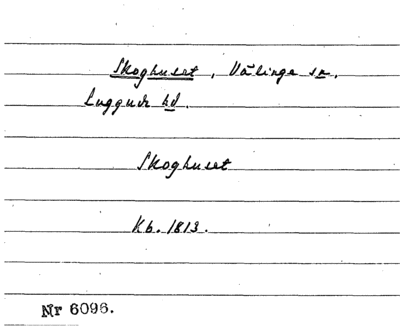 Skoghuset, Välinge sn.
Luggude hd.
Skoghuset
Kb. 1813.
Nr 6096.